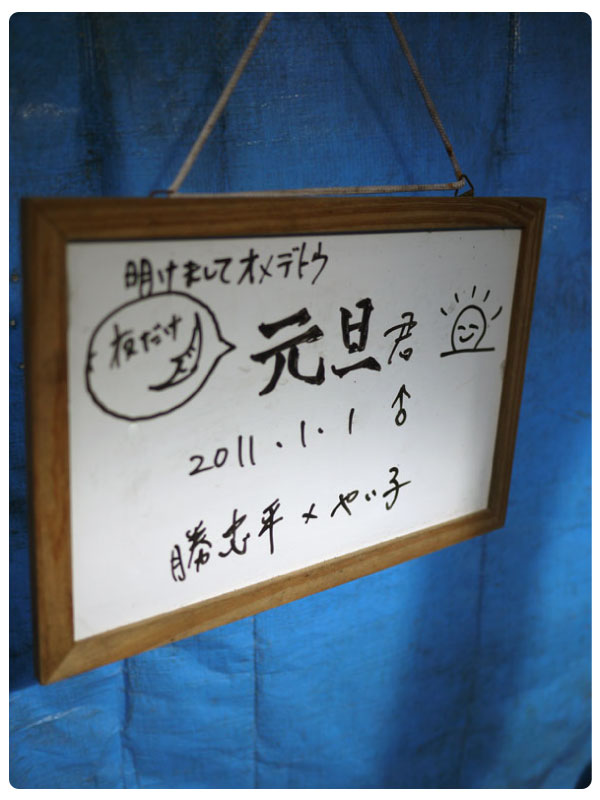 明けましてオメデトウ
夜だけ
元旦君
♂
2011.1.1
勝忠平×やい子